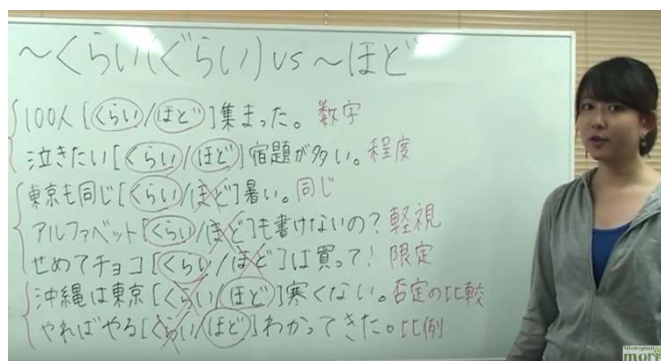 ～くらい(ぐらい)vs～ほど
100人[くらい/ほど]集まった。数字
泣きたい[くらい/ほど]宿題が多い。程度
東京も同じ[くらい/ほど]暑い。同じ
アルファベット[くらい/ほど]も書けないの？軽視
せめてチョコ[くらい/ほど]は買って！限定
沖縄は東京[くらい/ほど]寒くない。否定の比較
やればやる[くらい/ほど]わかってきた。比例
more